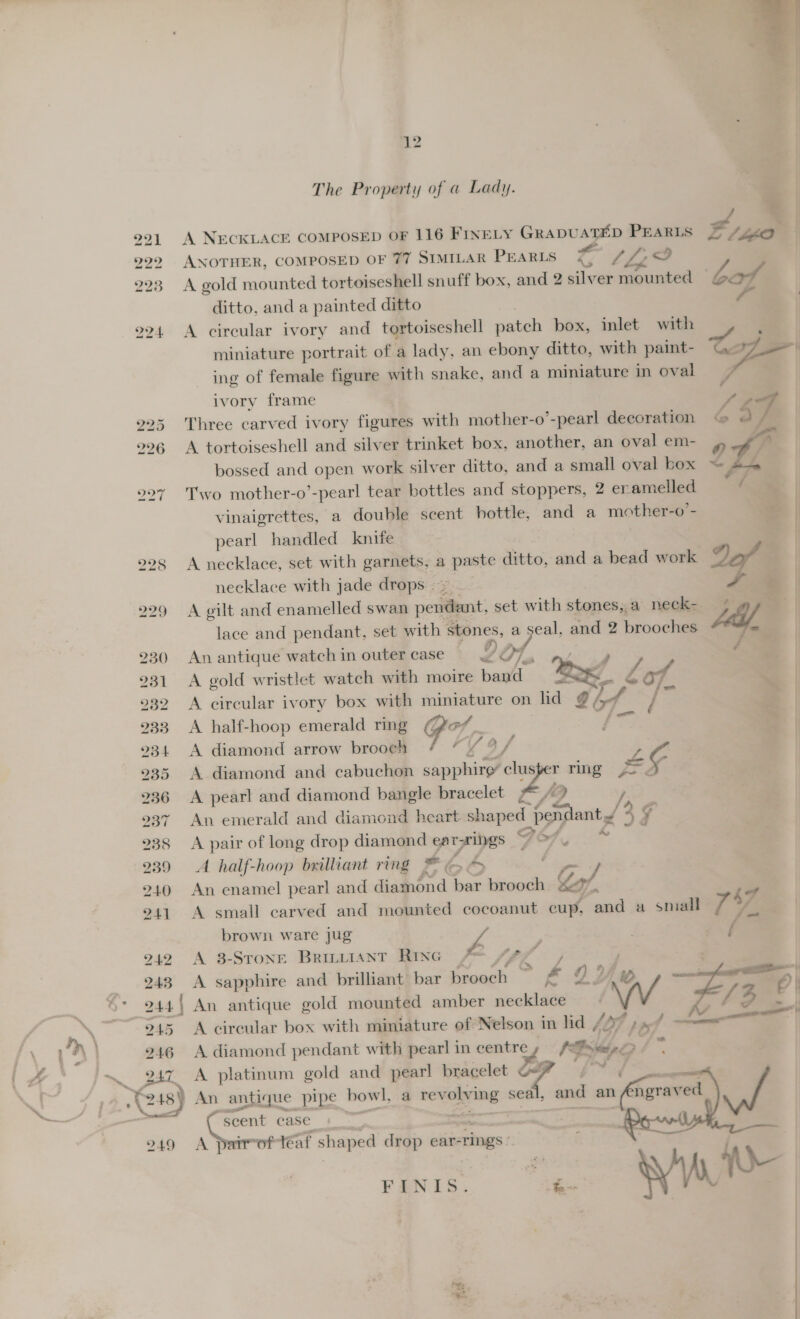 12
The Property of a Lady.
221 A NECKLACE COMPOSED OF 116 FINELY GRADUATED PEARLS
222 ANOTHER, COMPOSED OF 77 SIMILAR PEARLS
223 A gold mounted tortoiseshell snuff box, and 2 silver mounted
ditto, and a painted ditto
224 A circular ivory and tortoiseshell patch box, inlet with
miniature portrait of a lady, an ebony ditto, with paint-
ing of female figure with snake, and a miniature in oval
ivory frame
225 Three carved ivory figures with mother-o'-pearl decoration
226 A tortoiseshell and silver trinket box, another, an oval em-
bossed and open work silver ditto, and a small oval box
227 Two mother-o'-pearl tear bottles and stoppers, 2 enamelled
vinaigrettes, a double scent bottle, and a mother-o'-
pearl handled knife
228 A necklace, set with garnets, a paste ditto, and a bead work
necklace with jade drops
229 A gilt and enamelled swan pendant, set with stones, a neck-
lace and pendant, set with stones, a seal, and 2 brooches
230 An antique watch in outer case
231 A gold wristlet watch with moire band
232 A circular ivory box with miniature on lid
233 A half-hoop emerald ring
234 A diamond arrow brooch
235 A diamond and cabuchon sapphire cluster ring
236 A pearl and diamond bangle bracelet
237 An emerald and diamond heart shaped pendant
238 A pair of long drop diamond ear-rings
239 A half-hoop brilliant ring
240 An enamel pearl and diamond bar brooch
241 A small carved and mounted cocoanut cup, and a small
brown ware jug
242 A 3-STONE BRILLIANT RING
243 A sapphire and brilliant bar brooch
244 An antique gold mounted amber necklace
245 A circular box with miniature of Nelson in lid
246 A diamond pendant with pearl in centre
247 A platinum gold and pearl bracelet
248 An antique pipe bowl, a revolving seal, and an engraved
scent case
249 A pair of leaf shaped drop ear-rings
FINIS.